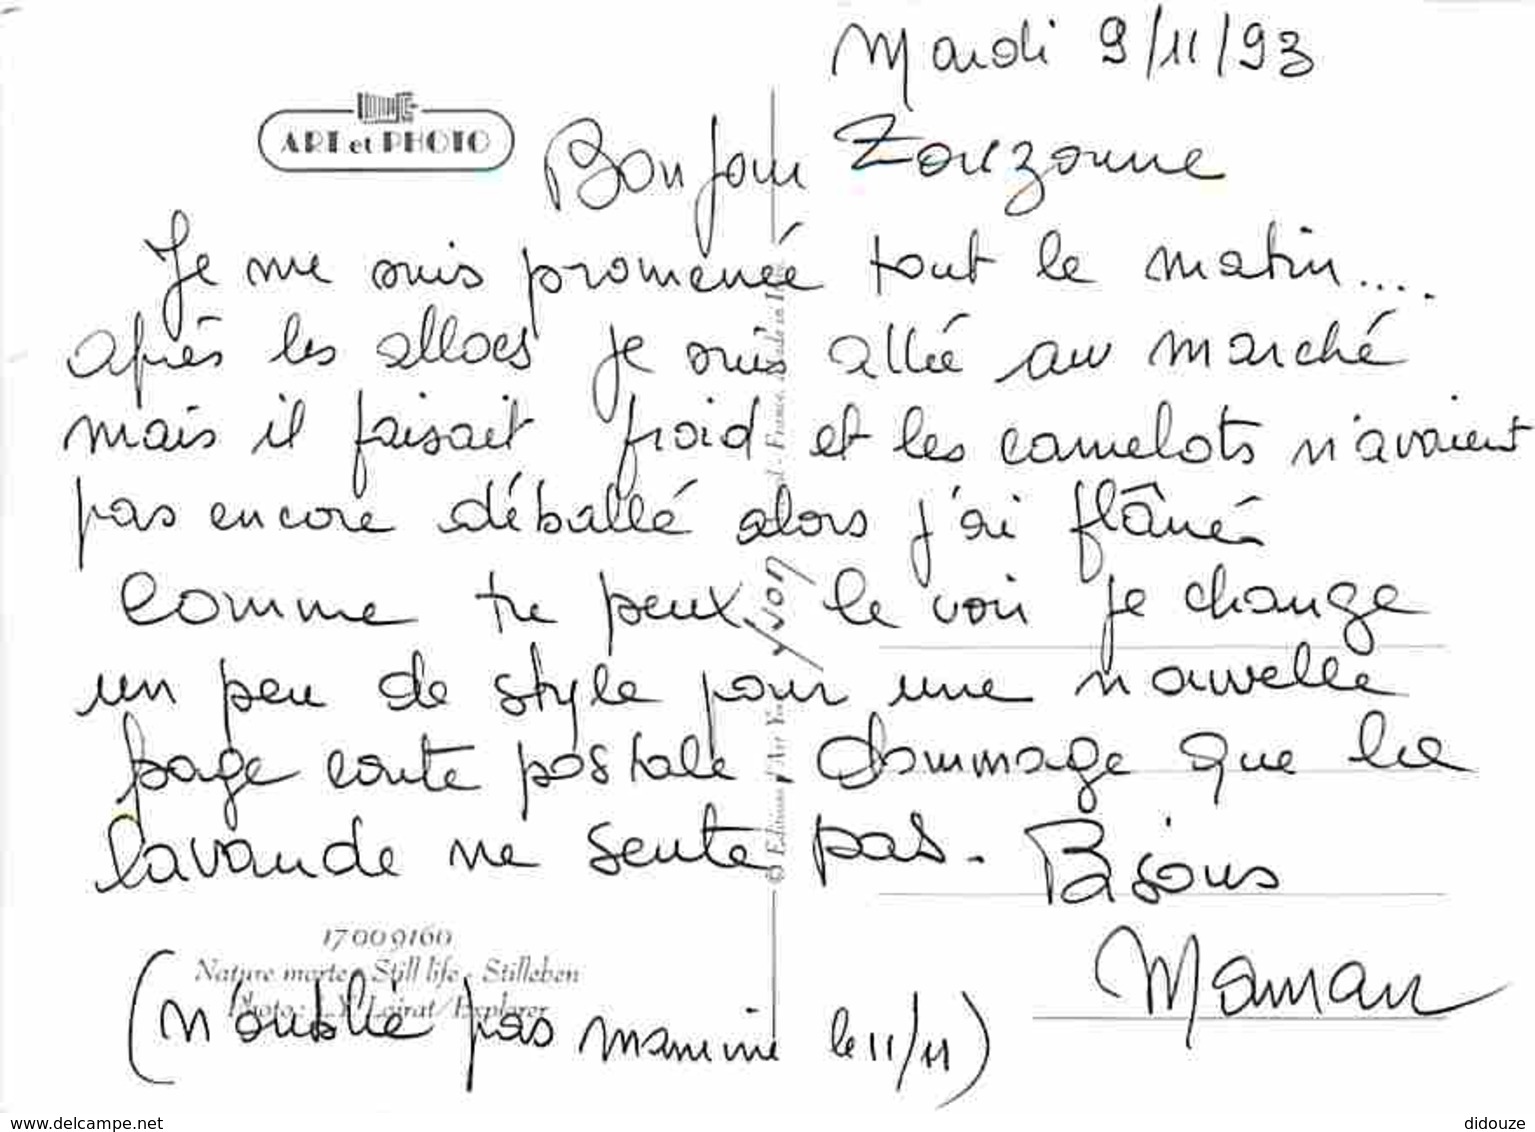 Mardi 9/11/93
ART et PHOTO
Bonjour Zouzoune
Je me suis promenée tout le matin....
après les allocs je suis allée au marché
mais il faisait froid et les camelots n'avaient
pas encore déballé alors j'ai flâné
Comme tu peux le voir je change
un peu de style pour une nouvelle
page carte postale. Dommage que la
lavande ne sente pas. Bisous
Maman
17 00 9160
Nature morte - Still life - Stilleben
Photo: Loirat/Explorer
(N'oublie pas mamine le 11/11)
© Editions d'Art Yvon France. Made in
www.delcampe.net
didouze